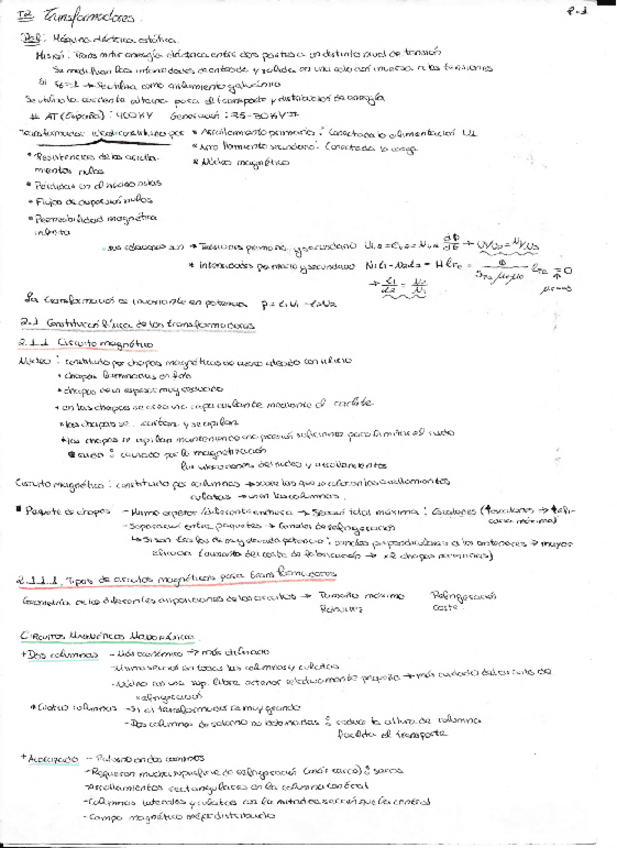 T2 Transformadores. P-1
Def: Máquina eléctrica estática.
Misión: Transmitir energía eléctrica entre dos puntos a un distinto nivel de tensión
Se modifican las intensidades de entrada y salida en una relación inversa a las tensiones
Si → Se utiliza como aislamiento galvánico
Se utiliza la corriente alterna para el transporte y distribución de energía
AT (España): 400KV Generación: 25-30KV
Transformador ideal constituido por * Arrollamiento primario: Conectado a alimentación U1
* Arrollamiento secundario: Conectado la carga
* Núcleo magnético
* Resistencias de los arrolla-
mientos nulas
* Pérdidas en el núcleo nulas
* Flujos de dispersión nulos
* Permeabilidad magnética
infinita
sus relaciones son → Tensiones primario y secundario
* intensidades primario y secundario
La transformación es invariante en potencia
2.1 Constitución física de los transformadores
2.1.1 Circuito magnético
Núcleo: constituido por chapas magnéticas de acero aleado con silicio
* chapas laminadas en frío
* chapas de un espesor muy reducido
* en las chapas se crea una capa aislante mediante el carlite
* las chapas se cortan y se apilan
* las chapas se apilan manteniendo una presión suficiente para limitar el ruido
ruido: causado por la magnetización
las vibraciones del núcleo y arrollamientos
Circuito magnético: constituido por columnas → sobre las que se colocan los arrollamientos
culatas → unen las columnas.
Paquete de chapas - Mismo espesor / diferente anchura → Sección total máxima: Escalones (↑escalones → ↑efi-
cacia máxima)
- Separación entre paquetes → Canales de refrigeración
↳ Si son trafos de muy elevada potencia: canales perpendiculares a los anteriores → mayor
eficacia (aumento del coste de fabricación → x2 chapas)
2.1.1.1. Tipos de circuitos magnéticos para transformadores
Geometría de las diferentes disposiciones de los circuitos → Tamaño máximo Refrigeración
Coste.
Circuitos Magnéticos Monofásicos.
+ Dos columnas - Más económico → más utilizado
- Misma sección en todas las columnas y culatas
- Núcleo con una sup. libre exterior relativamente pequeña → más cuidado del circuito de
refrigeración
* Cuatro columnas → Si el transformador es muy grande
- Dos columnas de retorno no bobinadas: reduce la altura de columna
facilita el transporte
+ Acorazado - Retorno en dos caminos
- Requieren mucha superficie de refrigeración (más caro): secos
- Arrollamientos rectangulares en la columna central
- Columnas laterales y culatas con la mitad de sección que la central
- Campo magnético mejor distribuido